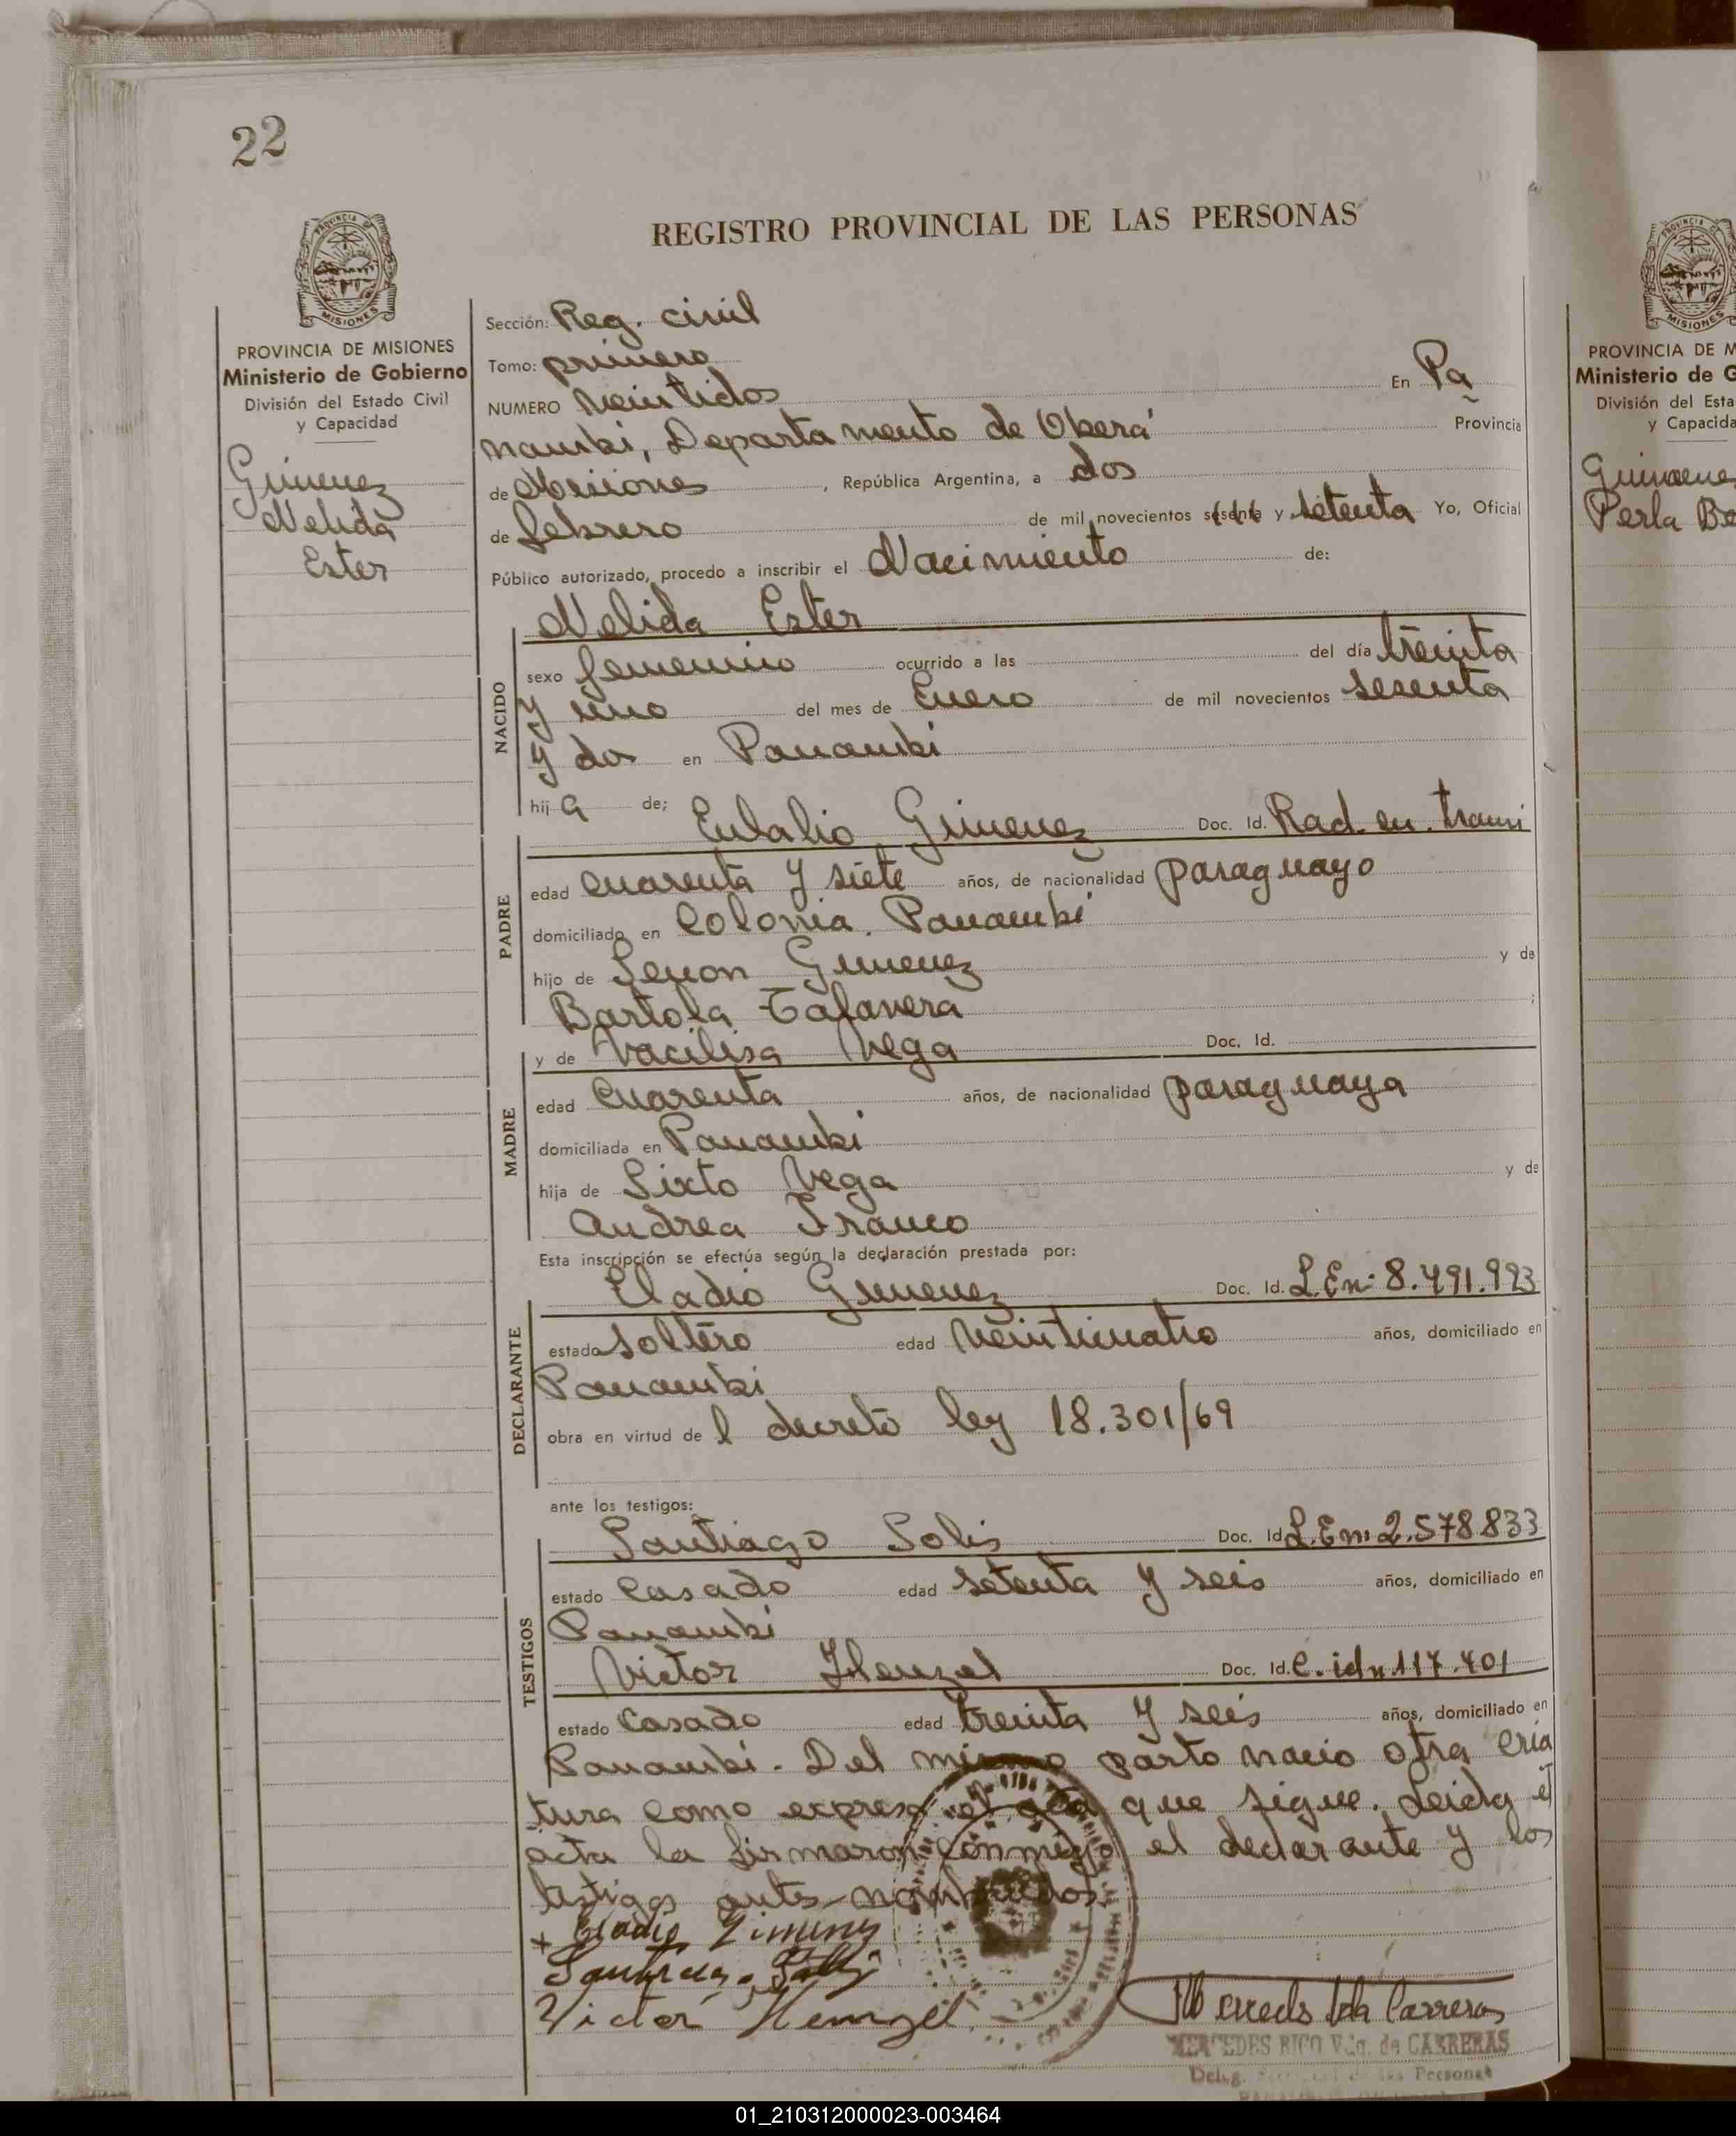 22
REGISTRO PROVINCIAL DE LAS PERSONAS
PROVINCIA DE MISIONES
Ministerio de Gobierno
División del Estado Civil
y Capacidad
Gimenez
Nelida
Ester
Sección: Reg. civil
Tomo: primero
NUMERO veintidos En Pa
nambi, Departamento de Oberá Provincia
de Misiones, República Argentina, a dos
de febrero de mil novecientos sesenta y setenta Yo, Oficial
Público autorizado, procedo a inscribir el Nacimiento de:
Nelida Ester
NACIDO
sexo femenino ocurrido a las del día treinta
y uno del mes de Enero de mil novecientos sesenta
y dos en Panambi
hij a de; Eulalio Gimenez Doc. Id. Rad. en. trami
PADRE
edad cuarenta y siete años, de nacionalidad paraguayo
domiciliado en Colonia. Panambi
hijo de Senon Gimenez y de
Bartola Talavera ;
y de Vacilisa Vega Doc. Id.
MADRE
edad cuarenta años, de nacionalidad paraguaya
domiciliada en Panambi
hija de Sixto Vega y de
Andrea Franco
Esta inscripción se efectúa según la declaración prestada por:
Eladio Gimenez Doc. Id. L.En: 8.491.993
DECLARANTE
estado soltero edad veinticuatro años, domiciliado en
Panambi
obra en virtud de l decreto ley 18.301/69
ante los testigos:
Santiago Solis Doc. Id. L.En: 2.578.833
TESTIGOS
estado Casado edad setenta y seis años, domiciliado en
Panambi
Victor Henzel Doc. Id. C. id n 117.401
estado Casado edad treinta y seis años, domiciliado en
Panambi. Del mismo parto nacio otra cria
tura como expresa el acta que sigue. Leida el
acta la firmaron conmigo el declarante y los
testigos antes nombrados.
+ Eladio Gimenez
Victor Henzel
MERCEDES RICO Vda. de CARRERAS
Deleg. de las Personas
PROVINCIA DE M
Ministerio de G
División del Esta
y Capacida
Gimene
Perla Be
01_210312000023-003464